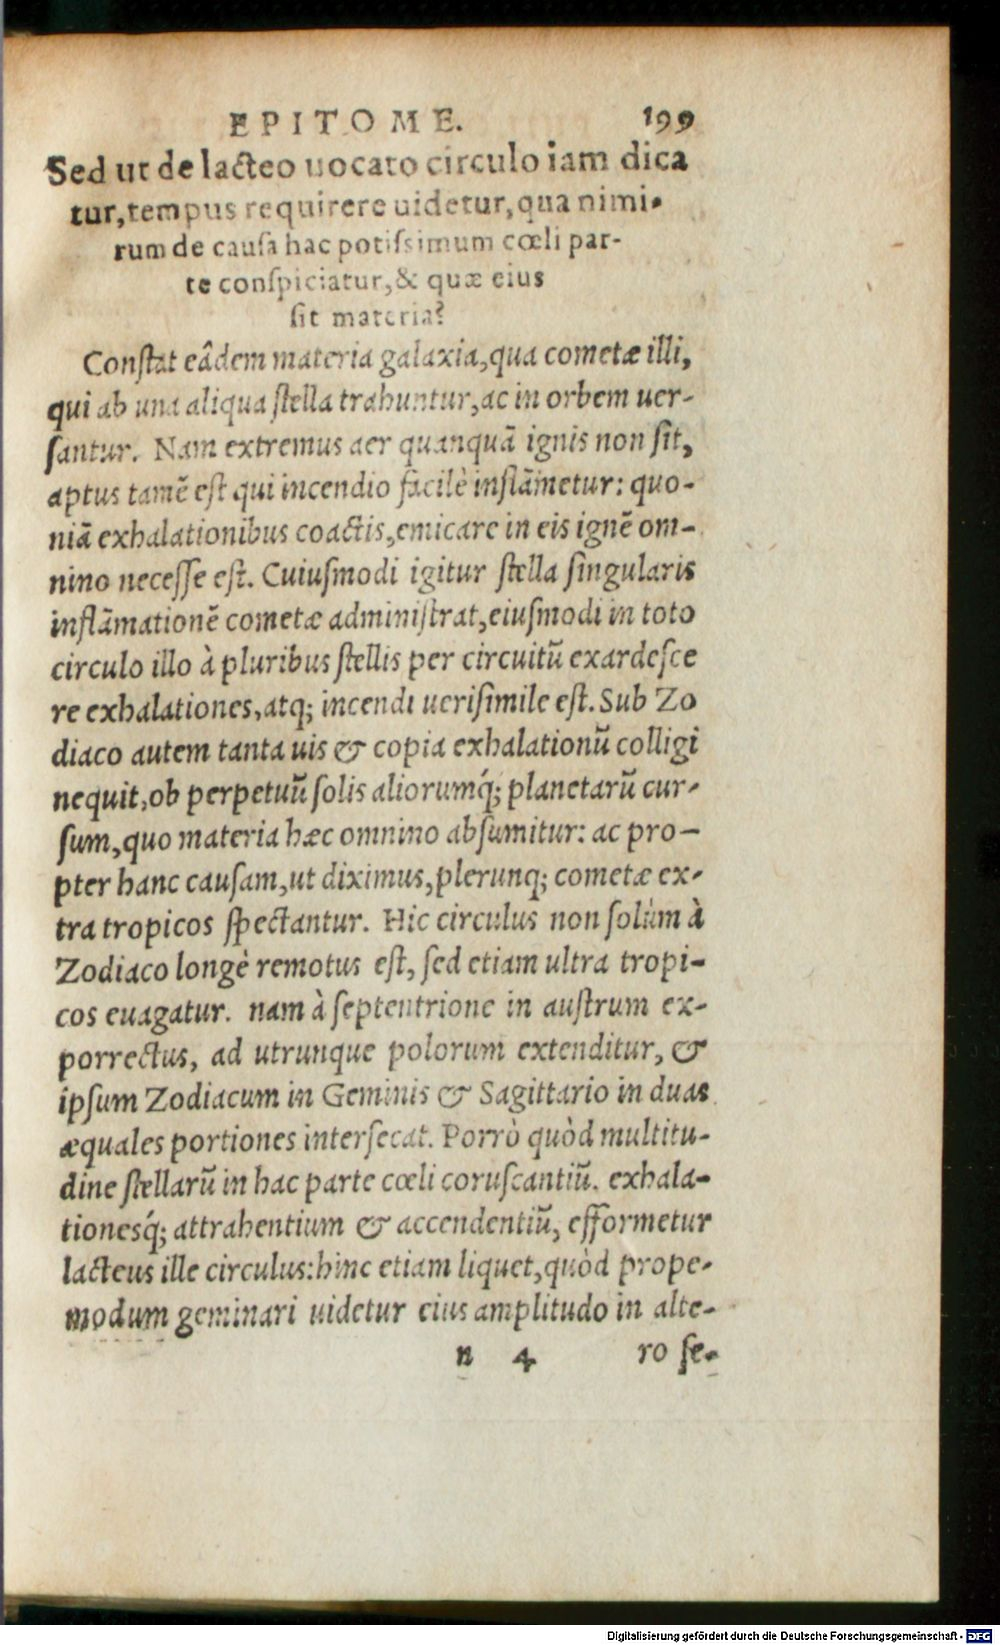 EPITOME. 199
Sed ut de lacteo uocato circulo iam dica
tur, tempus requirere uidetur, qua nimi-
rum de causa hac potiſsimum cœli par-
te conſpiciatur, & quæ eius
ſit materia?
Conſtat eâdem materia galaxia, qua cometæ illi,
qui ab una aliqua ſtella trahuntur, ac in orbem uer-
ſantur. Nam extremus aer quanquā ignis non ſit,
aptus tamē eſt qui incendio facilè inflāmetur: quo-
niā exhalationibus coactis, emicare in eis ignē om-
nino neceſſe eſt. Cuiuſmodi igitur ſtella ſingularis
inflāmationē cometæ adminiſtrat, eiuſmodi in toto
circulo illo à pluribus ſtellis per circuitū exardeſce
re exhalationes, atq; incendi ueriſimile eſt. Sub Zo
diaco autem tanta uis & copia exhalationū colligi
nequit, ob perpetuū ſolis aliorumq́; planetarū cur-
ſum, quo materia hæc omnino abſumitur: ac pro-
pter hanc cauſam, ut diximus, plerunq; cometæ ex-
tra tropicos ſpectantur. Hic circulus non ſolùm à
Zodiaco longè remotus eſt, ſed etiam ultra tropi-
cos euagatur. nam à ſeptentrione in auſtrum ex-
porrectus, ad utrunque polorum extenditur, &
ipſum Zodiacum in Geminis & Sagittario in duas
æquales portiones interſecat. Porrò quòd multitu-
dine ſtellarū in hac parte cœli coruſcantiū. exhala-
tionesq́; attrahentium & accendentiū, efformetur
lacteus ille circulus: hinc etiam liquet, quòd prope-
modum geminari uidetur eius amplitudo in alte-
n 4 ro ſe-
Digitalisierung gefördert durch die Deutsche Forschungsgemeinschaft - DFG